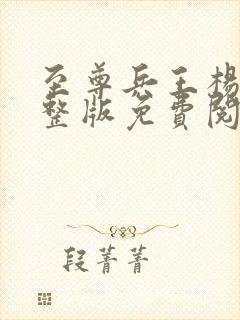 至尊兵王楊
整版免費閱
段菁菁